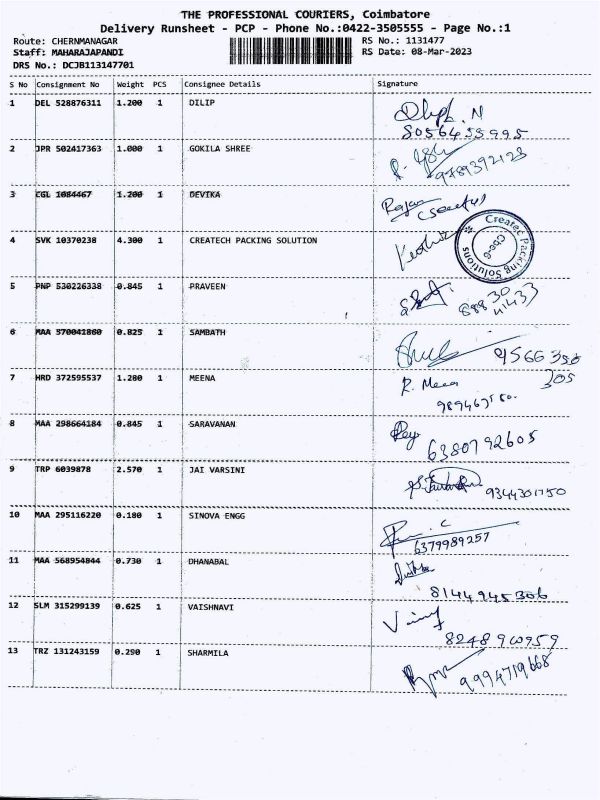 THE PROFESSIONAL COURIERS, Coimbatore
Delivery Runsheet - PCP - Phone No.:0422-3505555 - Page No.:1
Route: CHERNMANAGAR RS No.: 1131477
Staff: MAHARAJAPANDI RS Date: 08-Mar-2023
DRS No.: DCJB113147701
S No Consignment No Weight PCS Consignee Details Signature
1 DEL 528876311 1.200 1 DILIP
8056455995
2 JPR 502417363 1.000 1 GOKILA SHREE
9789392123
3 CGL 1084467 1.200 1 DEVIKA
Rajan
4 SVK 10370238 4.300 1 CREATECH PACKING SOLUTION
Createc Packing Solutions
5 PNP 530226338 0.845 1 PRAVEEN
88830
41433
6 MAA 570041860 0.825 1 SAMBATH
9566 350
305
7 HRD 372595537 1.280 1 MEENA
R. Meena
8 MAA 298664184 0.845 1 SARAVANAN
6380792605
9 TRP 6039878 2.570 1 JAI VARSINI
9344301750
10 MAA 295116220 0.180 1 SINOVA ENGG
6379989257
11 MAA 568954844 0.730 1 DHANABAL
8144945306
12 SLM 315299139 0.625 1 VAISHNAVI
13 TRZ 131243159 0.290 1 SHARMILA
9994719668